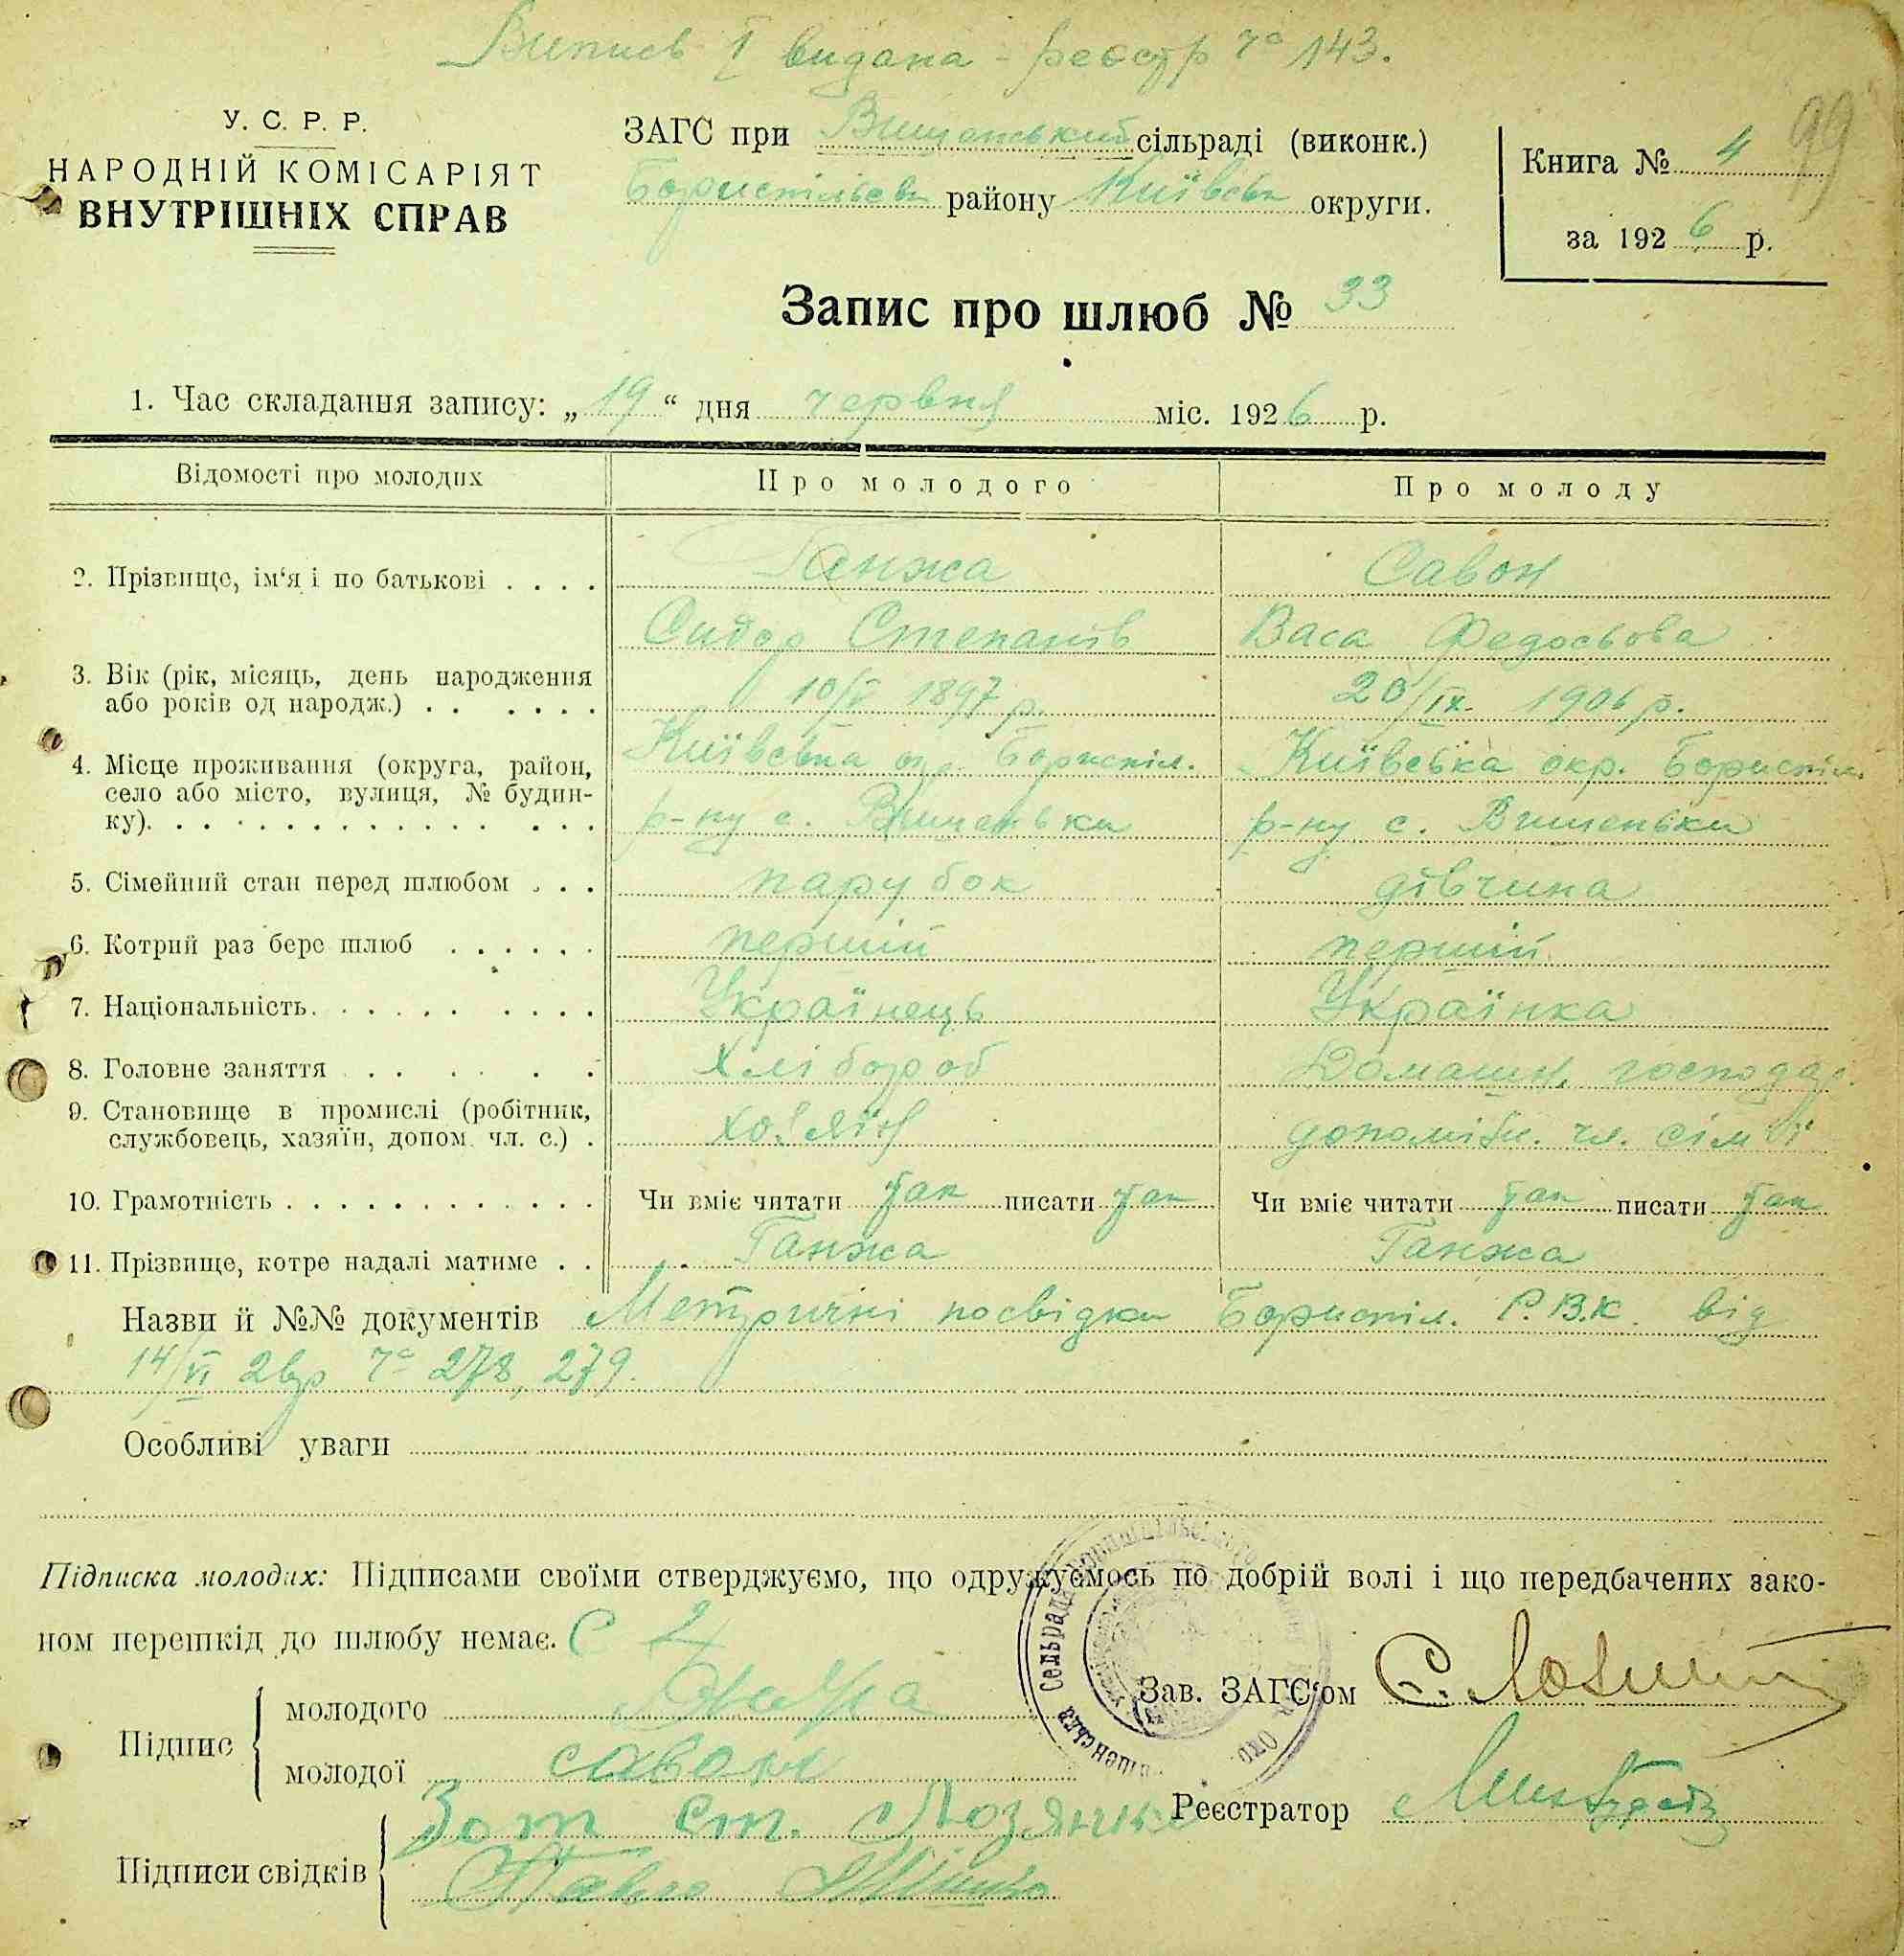 Випись I видана - реєстр № 143.
99
У. С. Р. Р.
НАРОДНІЙ КОМІСАРІЯТ
ВНУТРІШНІХ СПРАВ
ЗАГС при сільраді (виконк.)
району Київськ округи.
Книга № 4
за 1926 р.
Запис про шлюб № 33
1. Час складання запису: „19“ дня червня міс. 1926 р.
Відомості про молодих Про молодого Про молоду
2. Прізвище, ім‘я і по батькові . . . . Ганжа Савон
Сидор Степанів Васа Федосьова
3. Вік (рік, місяць, день народження
або років од народж.) . . . . . . 10/V 1897 р. 20/IX. 1906 р.
4. Місце проживання (округа, район,
село або місто, вулиця, № будин-
ку). Київська окр. Бориспіл. Київська окр. Бориспіл.
р-ну с. Вишеньки р-ну с. Вишеньки
5. Сімейний стан перед шлюбом . . . парубок дівчина
6. Котрий раз бере шлюб . . . . . . перший перший
7. Національність. . . . . . . . . . Українець Українка
8. Головне заняття . . . . . . Хлібороб Домашн. господар.
9. Становище в промислі (робітник,
службовець, хазяїн, допом. чл. с.) . хозяїн допоміжн. чл. сім'ї
10. Грамотність . . . . . . . . . . . . . Чи вміє читати так писати так Чи вміє читати так писати так
11. Прізвище, котре надалі матиме . . Ганжа Ганжа
Назви й №№ документів Метричні посвідки Бориспіл. Р.В.К. від
14/VI 26 р № 278, 279.
Особливі уваги
Підписка молодих: Підписами своїми стверджуємо, що одружуємось по добрій волі і що передбачених зако-
ном перешкід до шлюбу немає.
Зав. ЗАГС‘ом
Підпис
молодого
молодої савон
Реєстратор
Підписи свідків
Зот Ст. Лозянко
Павло